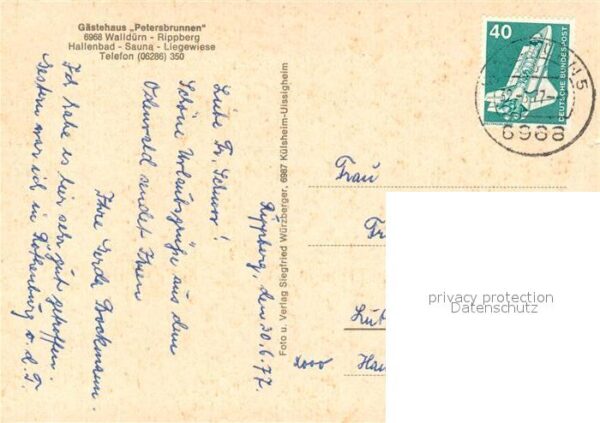 Gästehaus „Petersbrunnen"
6968 Walldürn - Rippberg
Hallenbad - Sauna - Liegewiese
Telefon (06286) 350
Rippberg, den 30.6.77
Liebe Fr.
Schöne Urlaubsgrüße aus dem
Odenwald sendet Ihnen
Ihre Gerda Brockmann.
Ich habe es hier sehr gut getroffen.
Gestern war ich in Rothenburg o. d. T.
Foto u. Verlag Siegfried Würzberger, 6987 Külsheim-Uissigheim
40
DEUTSCHE BUNDESPOST
6968
Frau
Fr
privacy protection
Datenschutz
Lut
Han